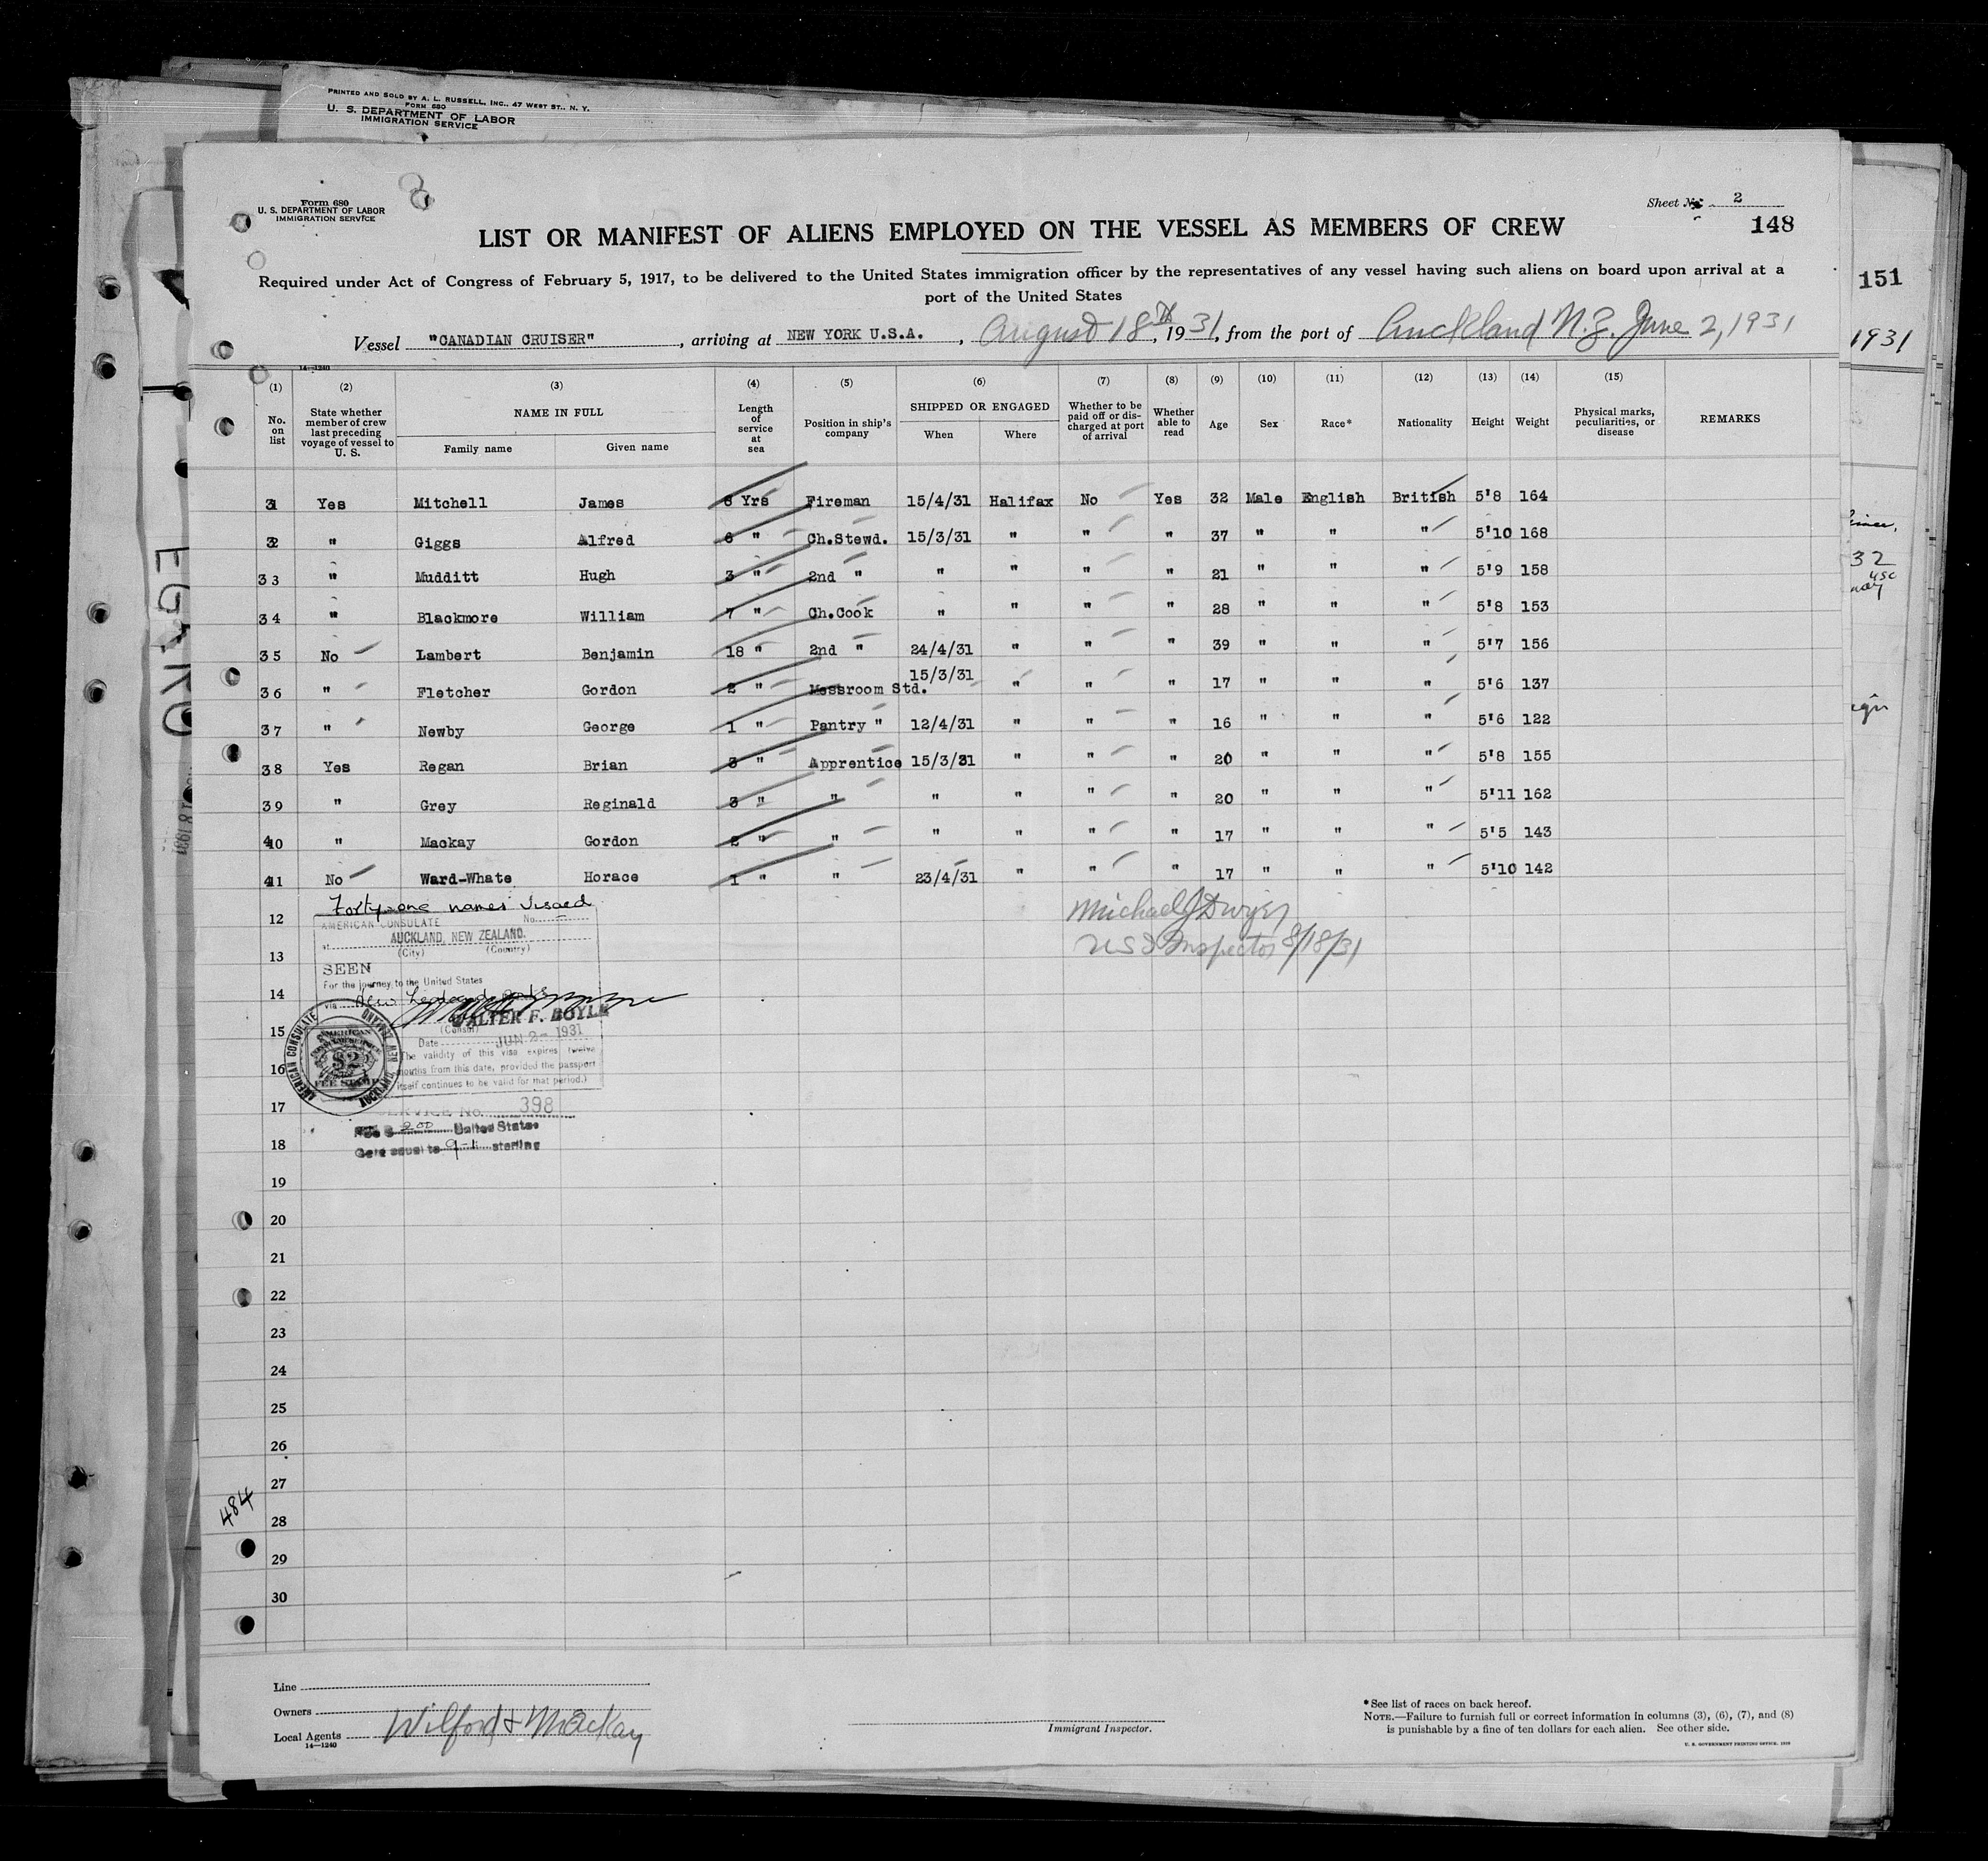 PRINTED AND SOLD BY A. L. RUSSELL, INC., 47 WEST ST., N. Y.
FORM 680
U. S. DEPARTMENT OF LABOR
IMMIGRATION SERVICE
Form 680
U. S. DEPARTMENT OF LABOR
IMMIGRATION SERVICE
Sheet No. 2
148
LIST OR MANIFEST OF ALIENS EMPLOYED ON THE VESSEL AS MEMBERS OF CREW
Required under Act of Congress of February 5, 1917, to be delivered to the United States immigration officer by the representatives of any vessel having such aliens on board upon arrival at a
port of the United States
151
Vessel "CANADIAN CRUISER", arriving at NEW YORK U.S.A., August 18th, 1931, from the port of Auckland N.Z. June 2, 1931
1931
14—1240
(1) (2) (3) (4) (5) (6) (7) (8) (9) (10) (11) (12) (13) (14) (15)
No. on list
State whether member of crew last preceding voyage of vessel to U. S.
NAME IN FULL
Family name
Given name
Length of service at sea
Position in ship's company
SHIPPED OR ENGAGED
When
Where
Whether to be paid off or discharged at port of arrival
Whether able to read
Age
Sex
Race*
Nationality
Height
Weight
Physical marks, peculiarities, or disease
REMARKS
31 Yes Mitchell James 8 Yrs Fireman 15/4/31 Halifax No Yes 32 Male English British 5'8 164
32 " Giggs Alfred 6 " Ch.Stewd. 15/3/31 " " " 37 " " " 5'10 168
33 " Mudditt Hugh 3 " 2nd " " " " " 21 " " " 5'9 158
34 " Blackmore William 7 " Ch.Cook " " " " 28 " " " 5'8 153
35 No Lambert Benjamin 18 " 2nd " 24/4/31 " " " 39 " " " 5'7 156
36 " Fletcher Gordon 2 " Messroom Std. 15/3/31 " " " 17 " " " 5'6 137
37 " Newby George 1 " Pantry " 12/4/31 " " " 16 " " " 5'6 122
38 Yes Regan Brian 3 " Apprentice 15/3/31 " " " 20 " " " 5'8 155
39 " Grey Reginald 3 " " " " " " 20 " " " 5'11 162
40 " Mackay Gordon 2 " " " " " " 17 " " " 5'5 143
41 No Ward-Whate Horace 1 " " 23/4/31 " " " 17 " " " 5'10 142
Forty-one names visaed
AMERICAN CONSULATE No.
at AUCKLAND, NEW ZEALAND.
(City) (Country)
SEEN
For the journey to the United States
via New Zealand ports
WALTER F. BOYLE
(Consul)
Date JUN 2- 1931
(The validity of this visa expires twelve
months from this date, provided the passport
itself continues to be valid for that period.)
AMERICAN CONSULATE
AUCKLAND NEW ZEALAND
AMERICAN
$2
FEE STAMP
SERVICE No. 398
Fee $ 2.00 United States
Gold equal to 9-1 sterling
Michael J Dwyer
US I Inspector 8/18/31
12
13
14
15
16
17
18
19
20
21
22
23
24
25
26
27
28
29
30
484
Line
Owners
Local Agents Wilford & McKay
14—1240
Immigrant Inspector.
* See list of races on back hereof.
NOTE.—Failure to furnish full or correct information in columns (3), (6), (7), and (8)
is punishable by a fine of ten dollars for each alien. See other side.
U. S. GOVERNMENT PRINTING OFFICE: 1929